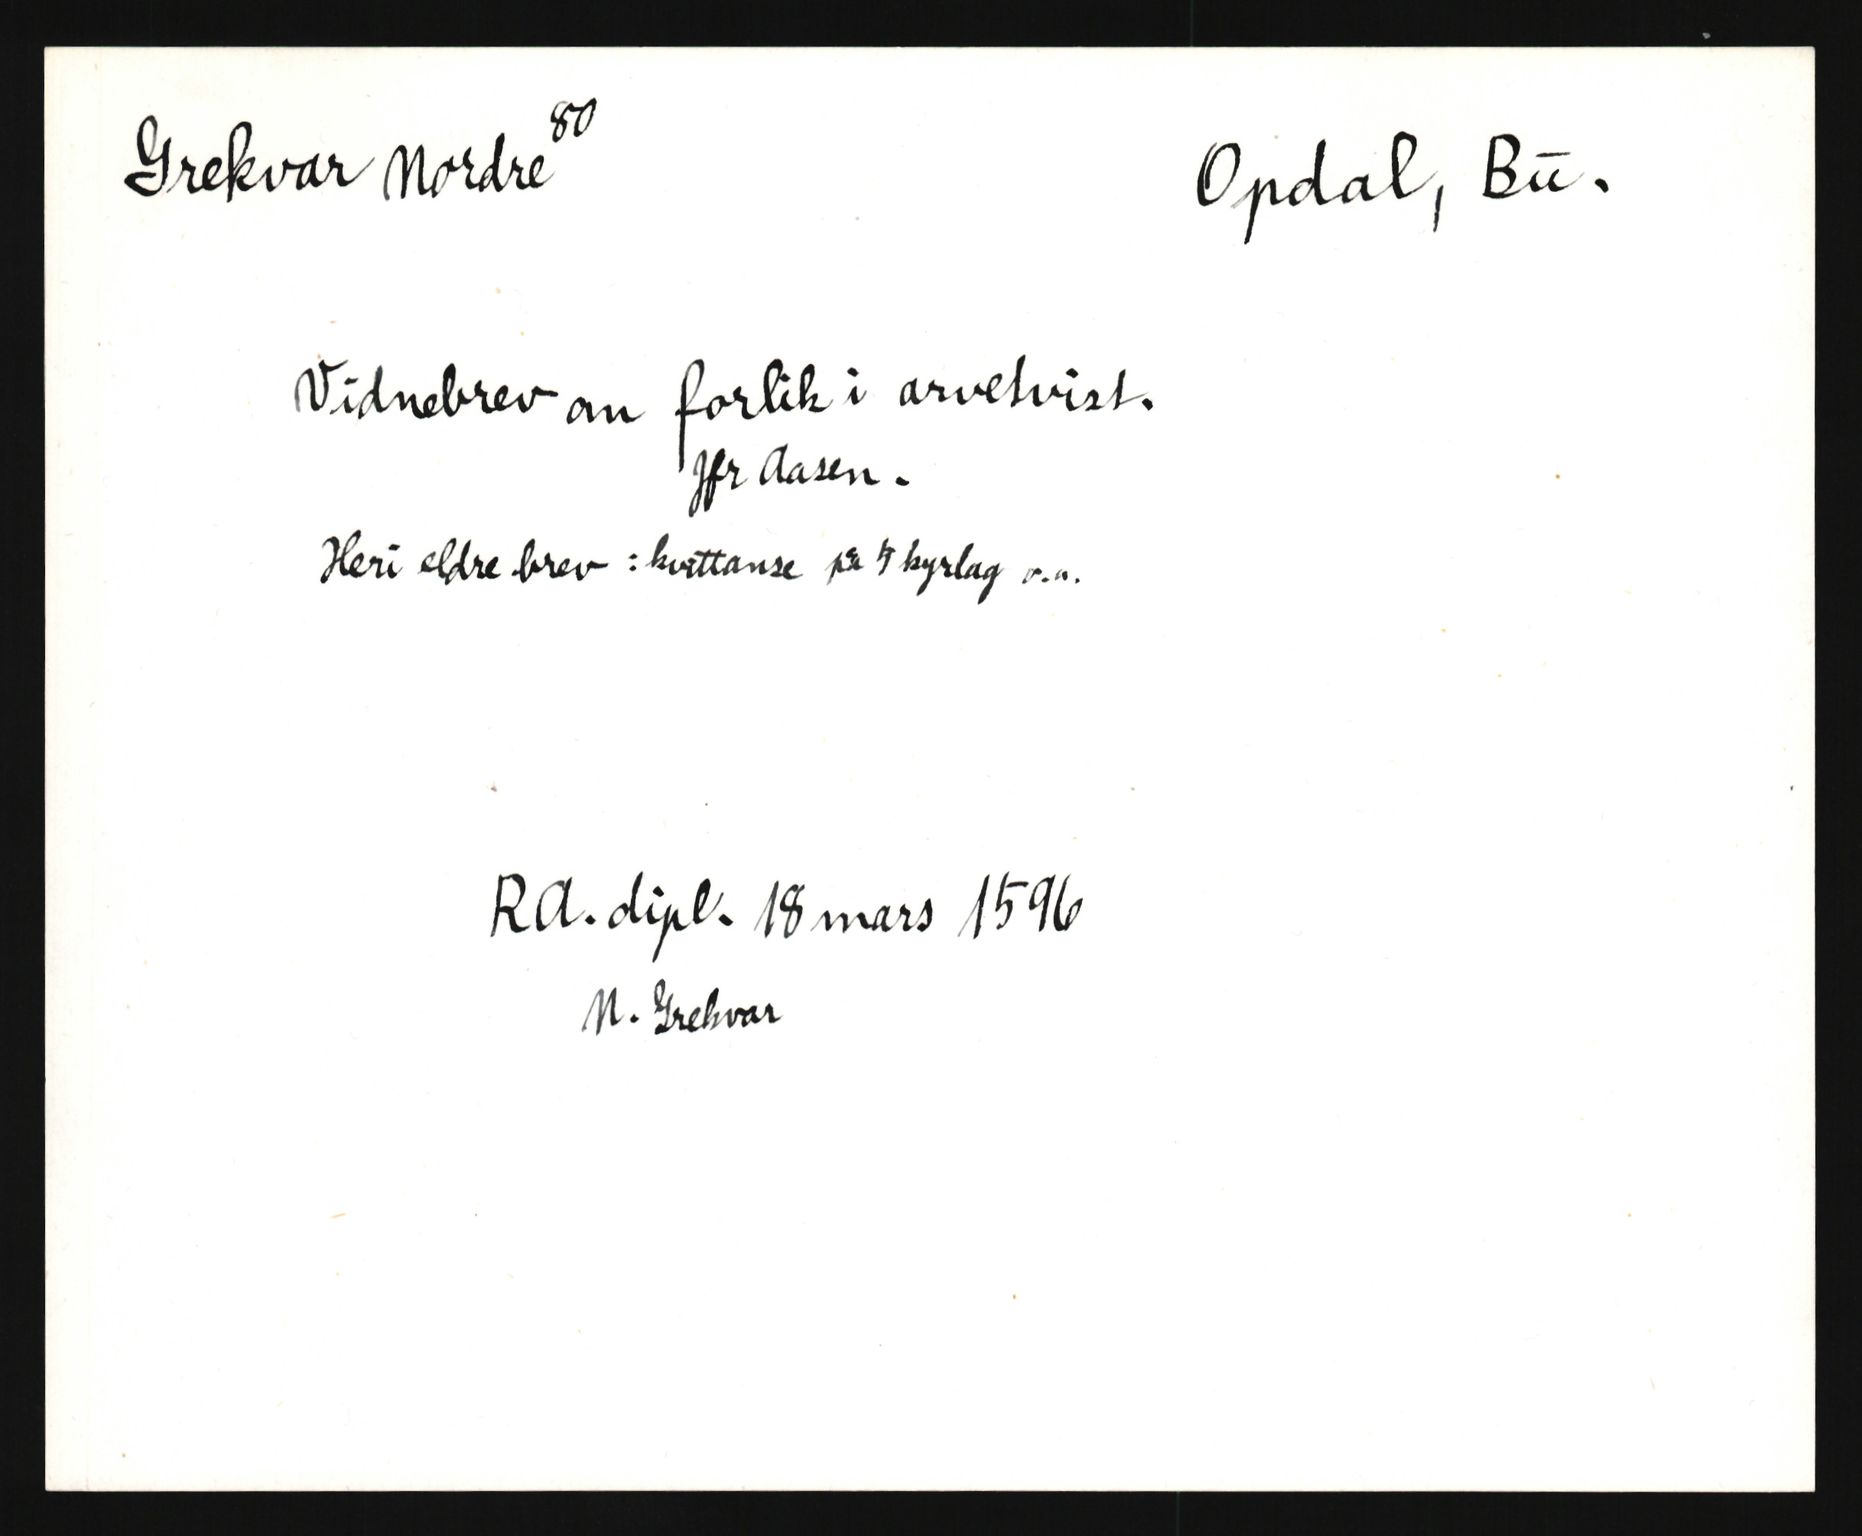 Grekvar Nordre 80
Opdal, Bu.
Vidnebrev om forlik i arvetvist.
Jfr Aasen.
Heri eldre brev : kvittanse på kyrlag o.a.
RA. dipl. 18 mars 1596
N. Grekvar